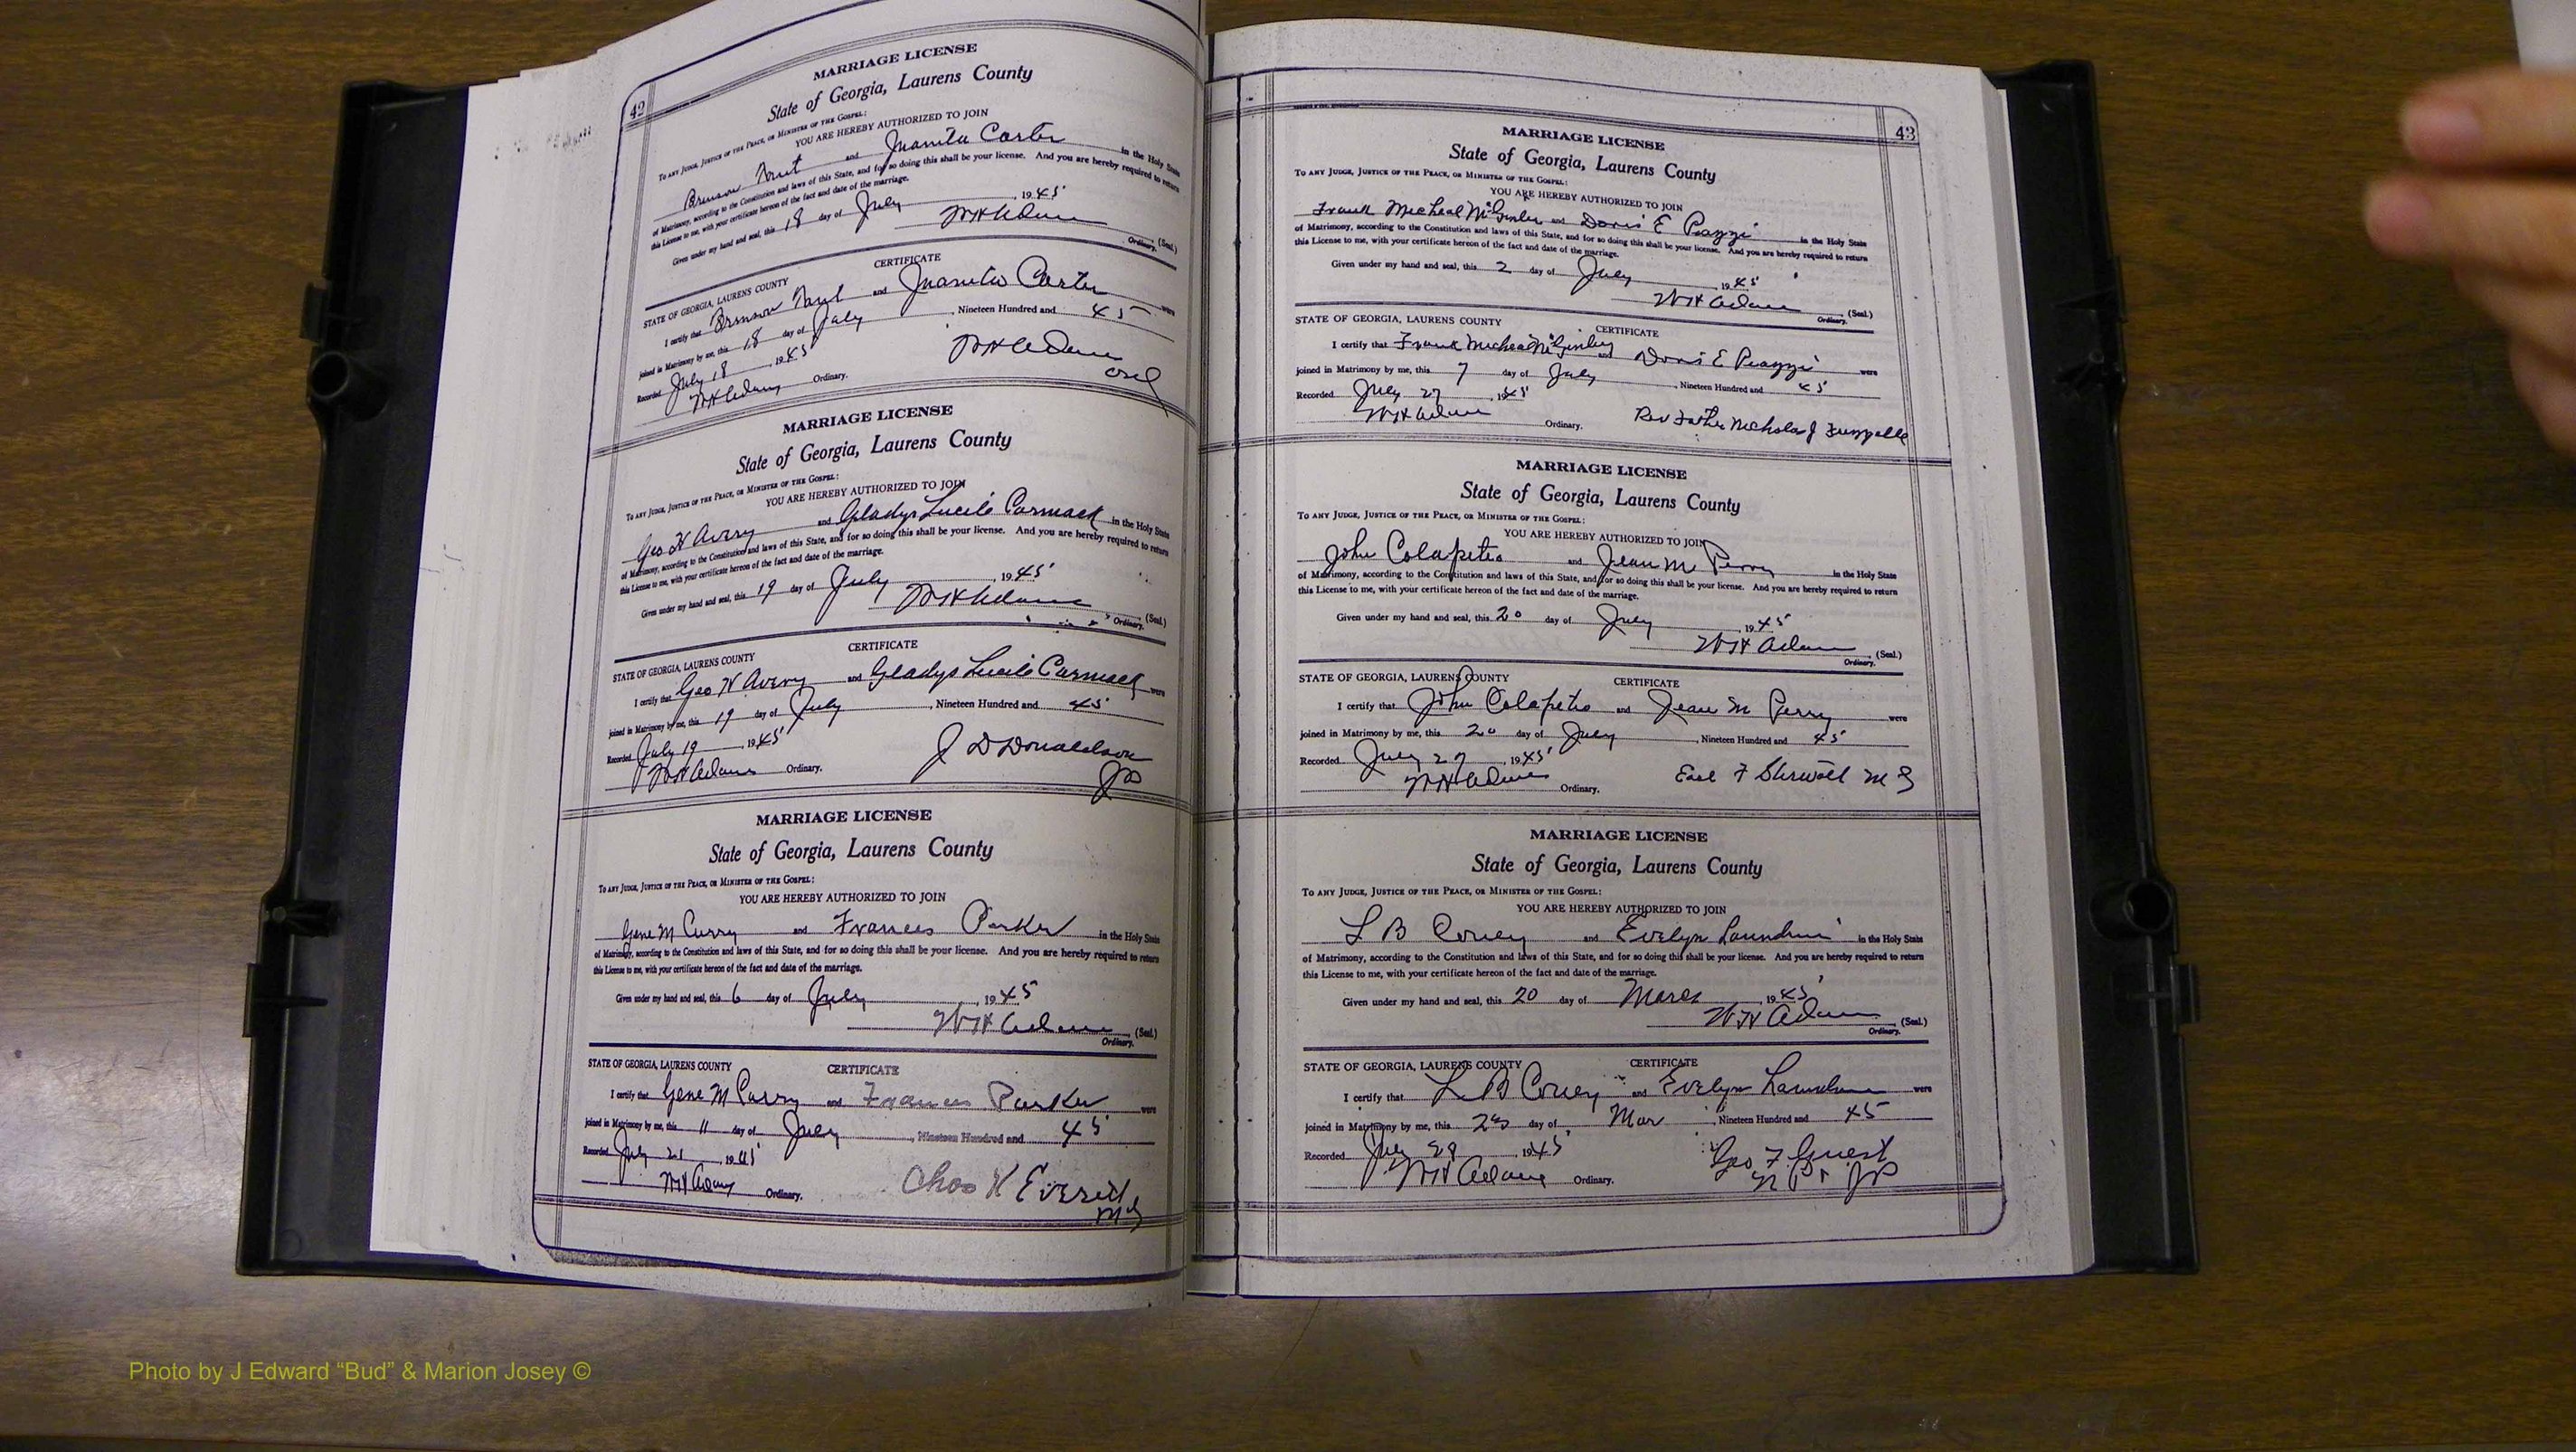 42
MARRIAGE LICENSE
State of Georgia, Laurens County
TO ANY JUDGE, JUSTICE OF THE PEACE, OR MINISTER OF THE GOSPEL:
YOU ARE HEREBY AUTHORIZED TO JOIN
Brinson and Juanita Carter in the Holy State
of Matrimony, according to the Constitution and laws of this State, and for so doing this shall be your license. And you are hereby required to return
this License to me, with your certificate hereof the fact and date of the marriage.
Given under my hand and seal, this 18 day of July, 1945
W H Adams (Seal.)
Ordinary.
CERTIFICATE
STATE OF GEORGIA, LAURENS COUNTY
I certify that Brinson and Juanita Carter were
joined in Matrimony by me, this 18 day of July, Nineteen Hundred and 45
Recorded July 18, 1945
W H Adams Ordinary.
W H Adams
Ord
MARRIAGE LICENSE
State of Georgia, Laurens County
TO ANY JUDGE, JUSTICE OF THE PEACE, OR MINISTER OF THE GOSPEL:
YOU ARE HEREBY AUTHORIZED TO JOIN
Geo H Avery and Gladys Lucile Carmack in the Holy State
of Matrimony, according to the Constitution and laws of this State, and for so doing this shall be your license. And you are hereby required to return
this License to me, with your certificate hereof the fact and date of the marriage.
Given under my hand and seal, this 19 day of July, 1945
W H Adams (Seal.)
Ordinary.
CERTIFICATE
STATE OF GEORGIA, LAURENS COUNTY
I certify that Geo H Avery and Gladys Lucile Carmack were
joined in Matrimony by me, this 19 day of July, Nineteen Hundred and 45
Recorded July 19, 1945
W H Adams Ordinary.
J D Donaldson
JP
MARRIAGE LICENSE
State of Georgia, Laurens County
TO ANY JUDGE, JUSTICE OF THE PEACE, OR MINISTER OF THE GOSPEL:
YOU ARE HEREBY AUTHORIZED TO JOIN
Gene M Curry and Frances Parker in the Holy State
of Matrimony, according to the Constitution and laws of this State, and for so doing this shall be your license. And you are hereby required to return
this License to me, with your certificate hereof the fact and date of the marriage.
Given under my hand and seal, this 6 day of July, 1945
W H Adams (Seal.)
Ordinary.
STATE OF GEORGIA, LAURENS COUNTY CERTIFICATE
I certify that Gene M Curry and Frances Parker were
joined in Matrimony by me, this 11 day of July, Nineteen Hundred and 45
Recorded July 21, 1945
W H Adams Ordinary.
Chas H Everett
MG
43
MARRIAGE LICENSE
State of Georgia, Laurens County
TO ANY JUDGE, JUSTICE OF THE PEACE, OR MINISTER OF THE GOSPEL:
YOU ARE HEREBY AUTHORIZED TO JOIN
Frank Micheal McGinley and Doris E Piazzi in the Holy State
of Matrimony, according to the Constitution and laws of this State, and for so doing this shall be your license. And you are hereby required to return
this License to me, with your certificate hereof the fact and date of the marriage.
Given under my hand and seal, this 2 day of July, 1945
W H Adams (Seal.)
Ordinary.
STATE OF GEORGIA, LAURENS COUNTY CERTIFICATE
I certify that Frank Micheal McGinley and Doris E Piazzi were
joined in Matrimony by me, this 7 day of July, Nineteen Hundred and 45
Recorded July 27, 1945
W H Adams Ordinary.
Rev Father Nicholas J
MARRIAGE LICENSE
State of Georgia, Laurens County
TO ANY JUDGE, JUSTICE OF THE PEACE, OR MINISTER OF THE GOSPEL:
YOU ARE HEREBY AUTHORIZED TO JOIN
John Colapetro and Jean M Perry in the Holy State
of Matrimony, according to the Constitution and laws of this State, and for so doing this shall be your license. And you are hereby required to return
this License to me, with your certificate hereof the fact and date of the marriage.
Given under my hand and seal, this 20 day of July, 1945
W H Adams (Seal.)
Ordinary.
STATE OF GEORGIA, LAURENS COUNTY CERTIFICATE
I certify that John Colapetro and Jean M Perry were
joined in Matrimony by me, this 20 day of July, Nineteen Hundred and 45
Recorded July 27, 1945
W H Adams Ordinary.
Earl F MG
MARRIAGE LICENSE
State of Georgia, Laurens County
TO ANY JUDGE, JUSTICE OF THE PEACE, OR MINISTER OF THE GOSPEL:
YOU ARE HEREBY AUTHORIZED TO JOIN
L B Covey and Evelyn in the Holy State
of Matrimony, according to the Constitution and laws of this State, and for so doing this shall be your license. And you are hereby required to return
this License to me, with your certificate hereof the fact and date of the marriage.
Given under my hand and seal, this 20 day of March, 1945
W H Adams (Seal.)
Ordinary.
STATE OF GEORGIA, LAURENS COUNTY CERTIFICATE
I certify that L B Covey and Evelyn were
joined in Matrimony by me, this day of Mar, Nineteen Hundred and 45
Recorded July 1945
W H Adams Ordinary.
Geo F Guest
JP
Photo by J Edward “Bud” & Marion Josey ©